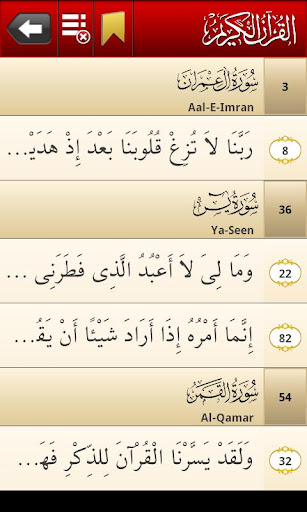 القرآن الكريم
سورة آل عمران
3
Aal-E-Imran
رَبَّنَا لاَ تُزِغْ قُلُوبَنَا بَعْدَ إِذْ هَدَيْ...
8
سورة يس
36
Ya-Seen
وَمَا لِىَ لاَ أَعْبُدُ الَّذِى فَطَرَنِى ...
22
إِنَّمَا أَمْرُهُ إِذَا أَرَادَ شَيْئًا أَنْ يَقُ...
82
سورة القمر
54
Al-Qamar
وَلَقَدْ يَسَّرْنَا الْقُرْآنَ لِلذِّكْرِ فَهَ...
32